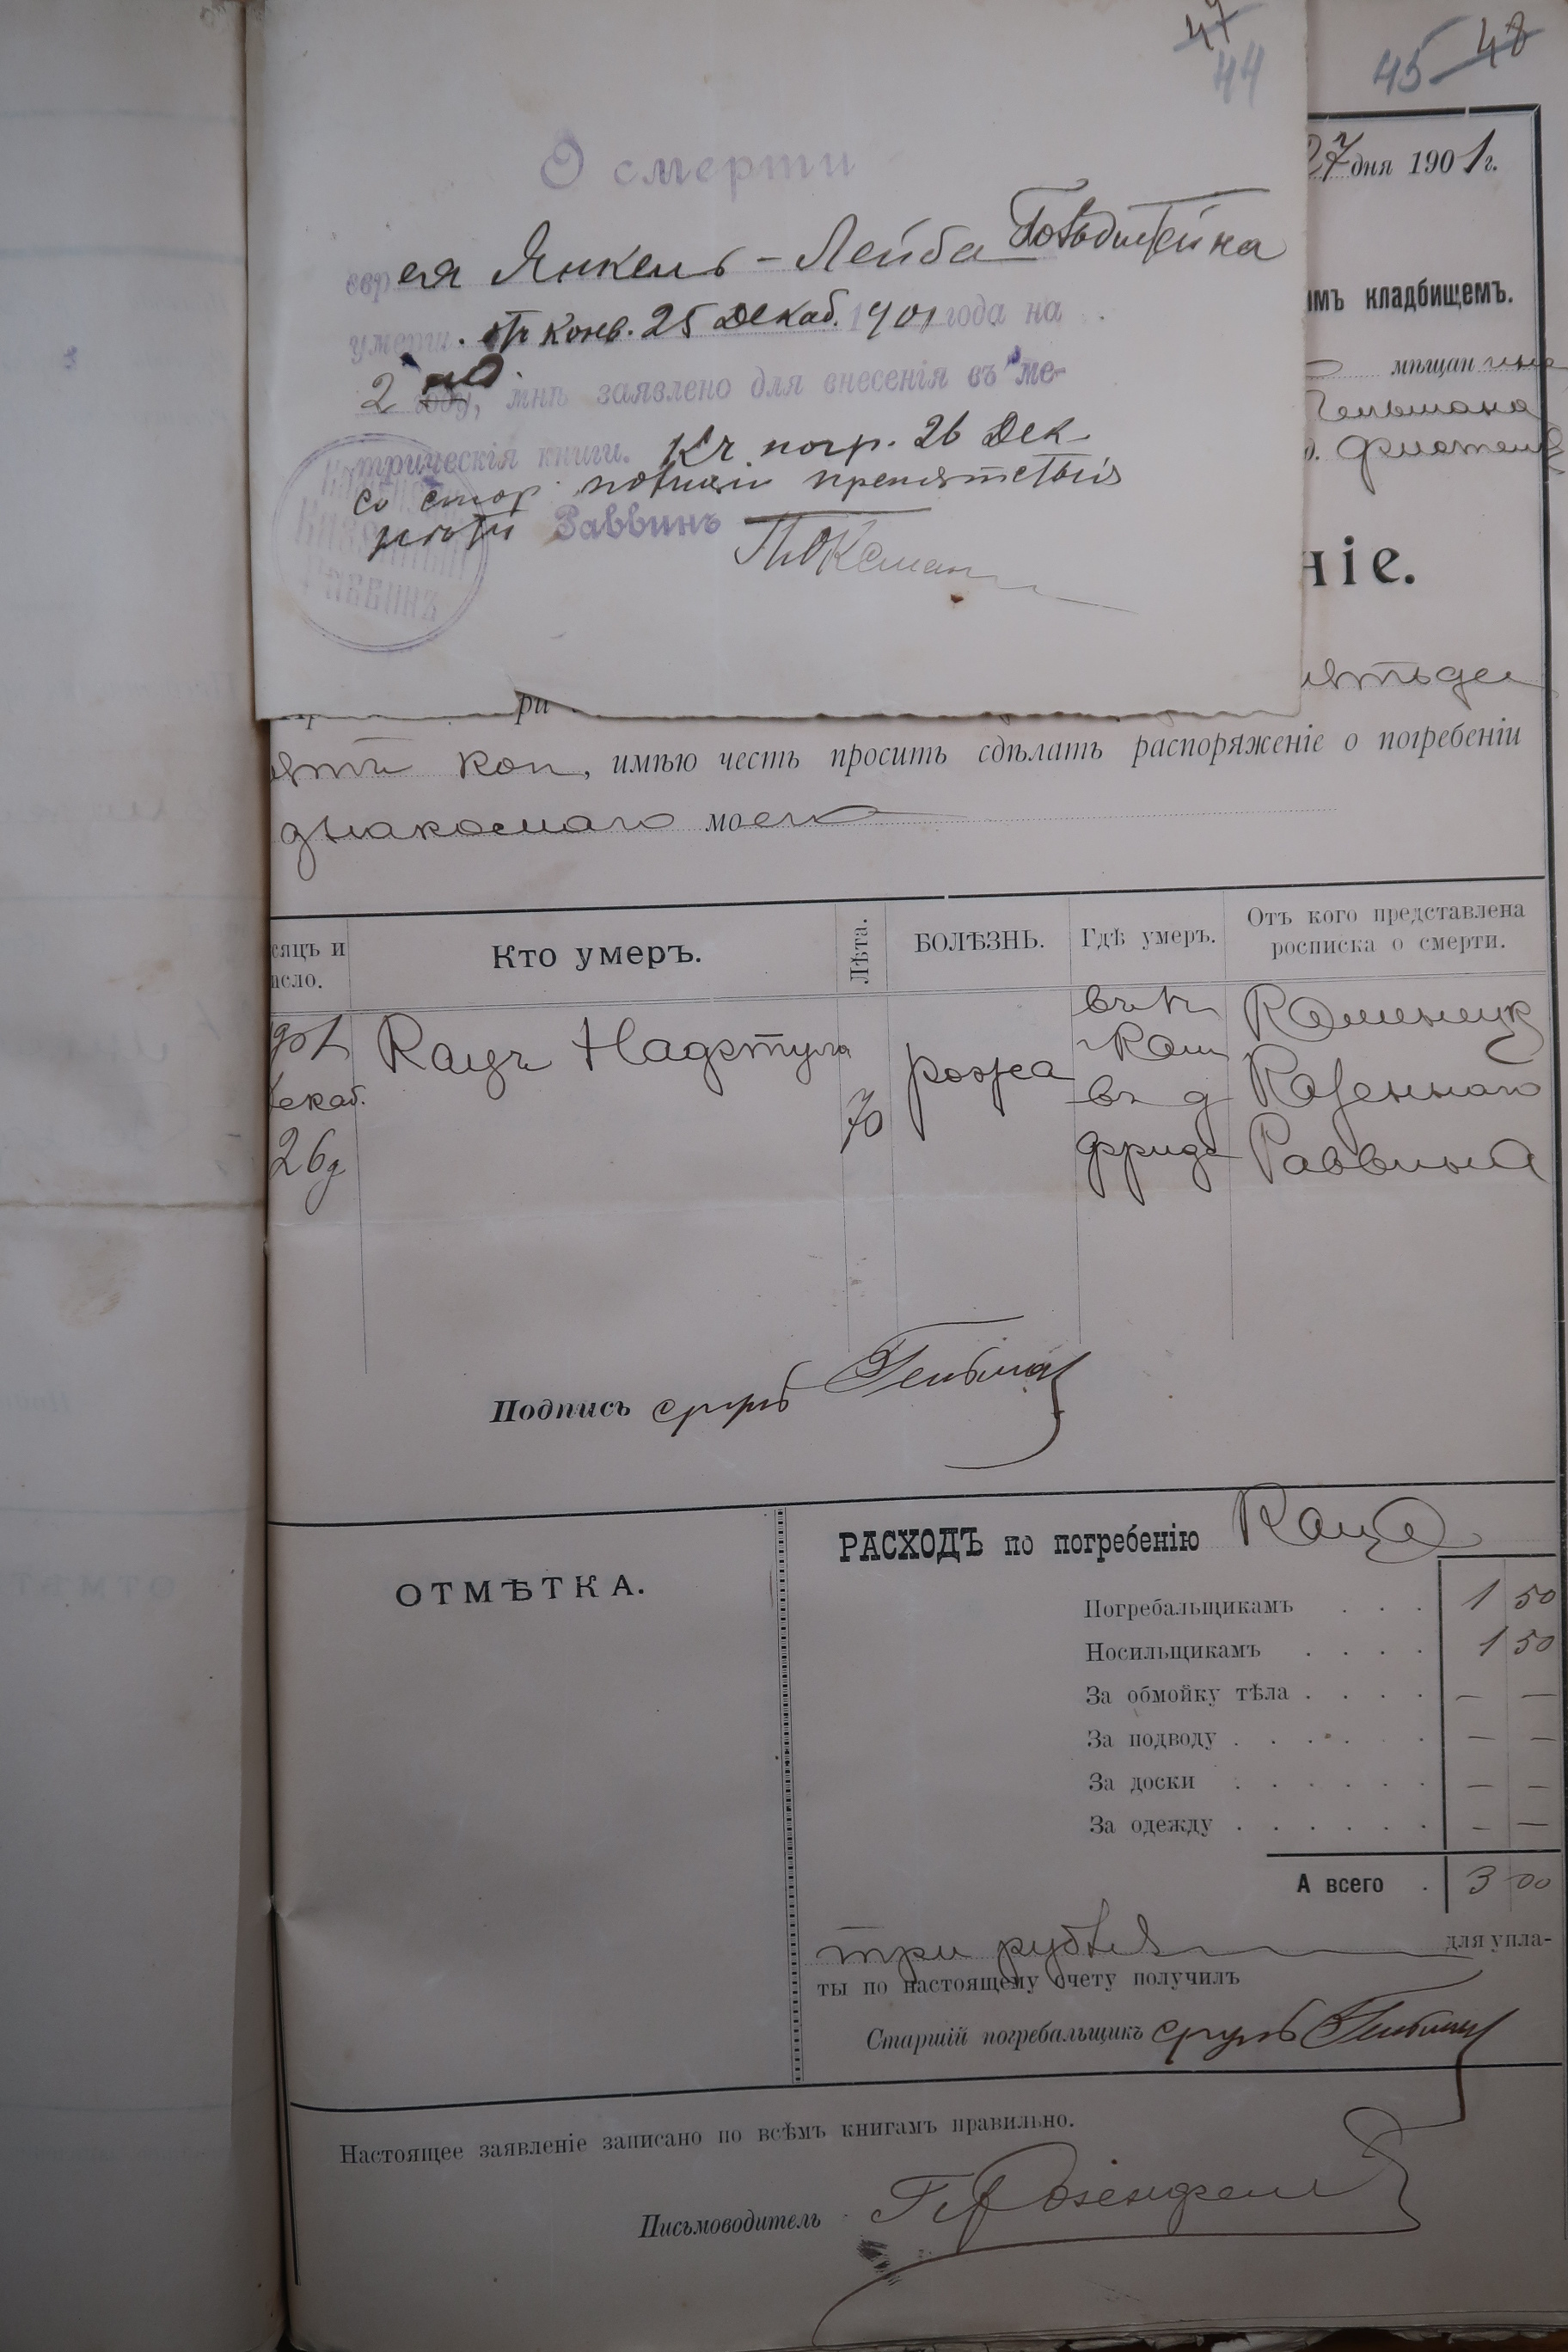 47
44
45 48
О смерти
27 дня 1901 г.
еврея Янкель-Лейба Гольдштейна
умерш. отъ конв. 25 Декаб. 1901 года на
имъ кладбищемъ.
2 году, мнѣ заявлено для внесенія въ ме-
мѣщанина
Гельмана
трическія книги. Къ погр. 26 Дек.
со стор. полиціи препятствія
нѣтъ Раввинъ
КАЗЕННЫЙ
РАВВИНЪ
ніе.
ятьдес
ри
ять коп, имѣю честь просить сдѣлать распоряженіе о погребеніи
знакомаго моего
сяцъ и
исло.
Кто умеръ.
Лѣта.
БОЛѢЗНЬ.
Гдѣ умеръ.
Отъ кого представлена
росписка о смерти.
901
Декаб.
26д
Кацъ
70
рожа
въ г
Кам
въ д
Фрид
Каменецк
Казеннаго
Раввина
Подпись Гельман
ОТМѢТКА.
РАСХОДЪ по погребенію Каца
Погребальщикамъ . . . 1 50
Носильщикамъ . . . . 1 50
За обмойку тѣла . . . . — —
За подводу . . . . . — —
За доски . . . . . . — —
За одежду . . . . . . — —
А всего . 3 00
три рубля для упла-
ты по настоящему счету получилъ
Старшій погребальщикъ Гельман
Настоящее заявленіе записано по всѣмъ книгамъ правильно.
Письмоводитель Розенфельд